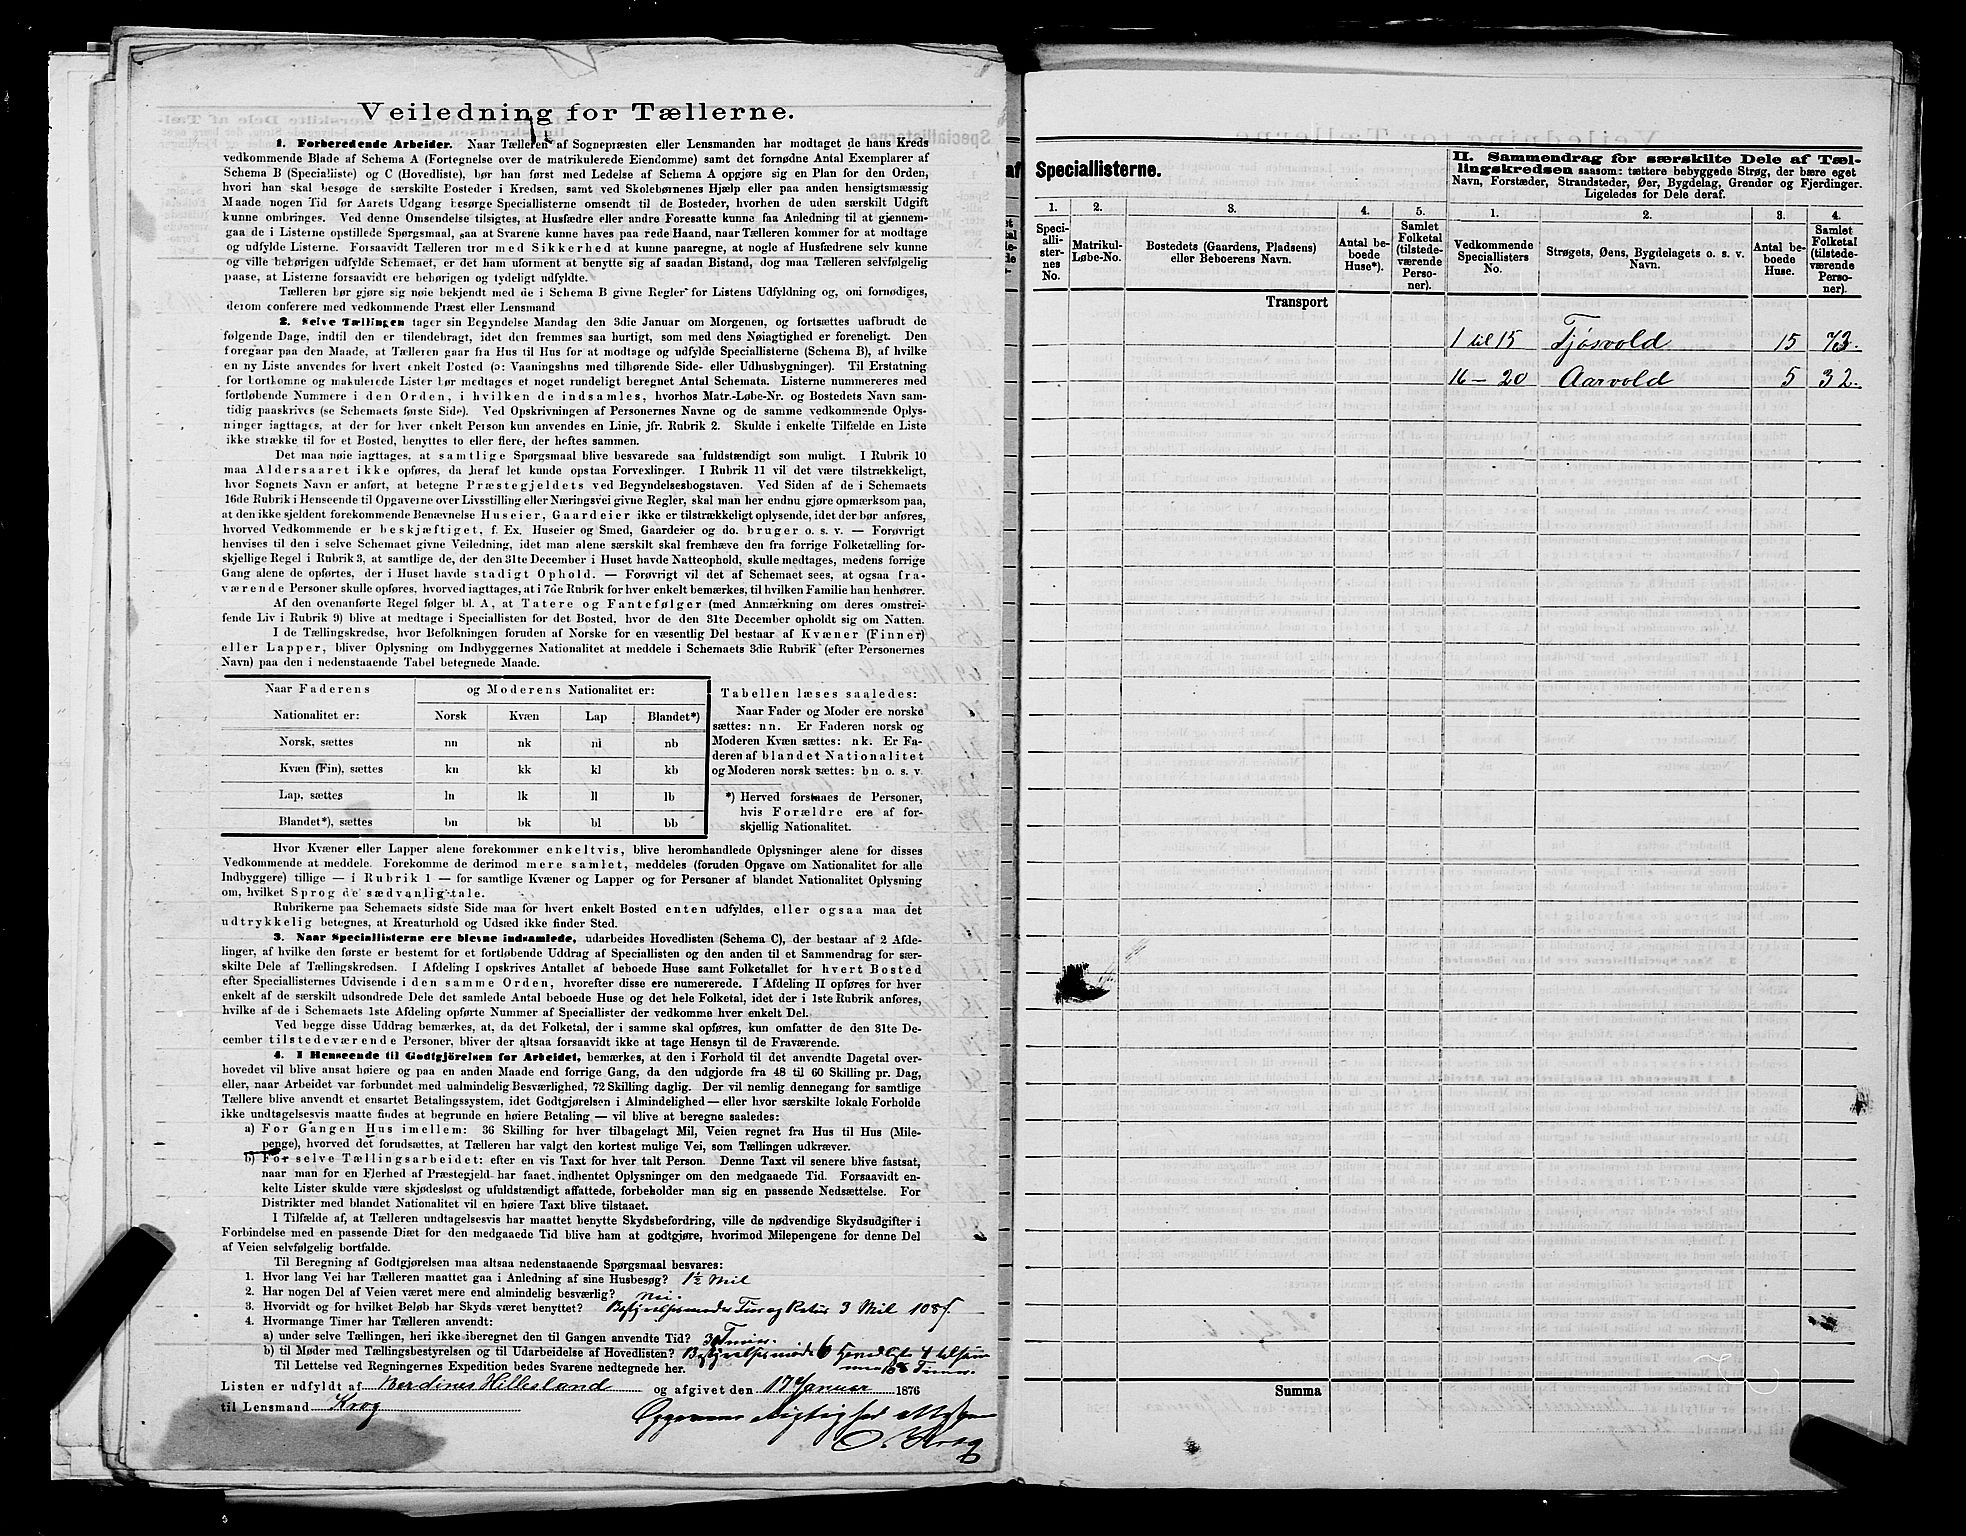 Veiledning for Tællerne.
1. Forberedende Arbeider. Naar Tælleren af Sognepræsten eller Lensmanden har modtaget de hans Kreds
vedkommende Blade af Schema A (Fortegnelse over de matrikulerede Eiendomme) samt det fornødne Antal Exemplarer af
Schema B (Specialliste) og C (Hovedliste), bør han først med Ledelse af Schema A opgjøre sig en Plan for den Orden,
hvori han skal besøge de særskilte Bosteder i Kredsen, samt ved Skolebørnenes Hjælp eller paa anden hensigtsmæssig
Maade nogen Tid før Aarets Udgang besørge Speciallisterne omsendt til de Bosteder, hvorhen de uden særskilt Udgift
kunne ombringes. Ved denne Omsendelse tilsigtes, at Husfædre eller andre Foresatte kunne faa Anledning til at gjennem-
gaa de i Listerne opstillede Spørgsmaal, saa at Svarene kunne haves paa rede Haand, naar Tælleren kommer for at modtage
og udfylde Listerne. Forsaavidt Tælleren tror med Sikkerhed at kunne paaregne, at nogle af Husfædrene selv kunne
og ville behørigen udfylde Schemaet, er det ham uforment at benytte sig af saadan Bistand, dog maa Tælleren selvfølgelig
paase, at Listerne forsaavidt ere behørigen og tydeligt udfyldte.
Tælleren bør gjøre sig nøie bekjendt med de i Schema B givne Regler for Listens Udfyldning og, om fornødiges,
derom conferere med vedkommende Præst eller Lensmand
2. Selve Tællingen tager sin Begyndelse Mandag den 3die Januar om Morgenen, og fortsættes uafbrudt de
følgende Dage, indtil den er tilendebragt, idet den fremmes saa hurtigt, som med dens Nøiagtighed er foreneligt. Den
foregaar paa den Maade, at Tælleren gaar fra Hus til Hus for at modtage og udfylde Speciallisterne (Schema B), af hvilke
en ny Liste anvendes for hvert enkelt Bosted (ɔ: Vaaningshus med tilhørende Side- eller Udhusbygninger). Til Erstatning
for bortkomne og makulerede Lister bør medtages et noget rundeligt beregnet Antal Schemata. Listerne nummereres med
fortløbende Nummere i den Orden, i hvilken de indsamles, hvorhos Matr.-Løbe-Nr. og Bostedets Navn sam-
tidig paaskrives (se Schemaets første Side). Ved Opskrivningen af Personernes Navne og de samme vedkommende Oplys-
ninger iagttages, at der for hver enkelt Person kun anvendes en Linie, jfr. Rubrik 2. Skulde i enkelte Tilfælde en Liste
ikke strække til for et Bosted, benyttes to eller flere, der heftes sammen.
Det maa nøie iagttages, at samtlige Spørgsmaal blive besvarede saa fuldstændigt som muligt. I Rubrik 10
maa Aldersaaret ikke opføres, da heraf let kunde opstaa Forvexlinger. I Rubrik 11 vil det være tilstrækkeligt,
hvor Sognets Navn er anført, at betegne Præstegjeldets ved Begyndelsesbogstaven. Ved Siden af de i Schemaets
16de Rubrik i Henseende til Opgaverne over Livsstilling eller Næringsvei givne Regler, skal man her endnu gjøre opmærksom paa,
at den ikke sjeldent forekommende Benævnelse Huseier, Gaardeier ikke er tilstrækkeligt oplysende, idet der bør anføres,
hvorved Vedkommende er beskjæftiget, f. Ex. Huseier og Smed, Gaardeier og do. bruger o. s. v. — Forøvrigt
henvises til den i selve Schemaet givne Veiledning, idet man alene særskilt skal fremhæve den fra forrige Folketælling for-
skjellige Regel i Rubrik 3, at samtlige de, der den 31te December i Huset havde Natteophold, skulle medtages, medens forrige
Gang alene de opførtes, der i Huset havde stadigt Ophold. — Forøvrigt vil det af Schemaet sees, at ogsaa fra-
værende Personer skulle opføres, hvorved iagttages, at i 7de Rubrik for hver enkelt bemærkes, til hvilken Familie han henhører.
Af den ovenanførte Regel følger bl. A, at Tatere og Fantefølger (med Anmærkning om deres omstrei-
fende Liv i Rubrik 9) blive at medtage i Speciallisten for det Bosted, hvor de den 31te December opholdt sig om Natten.
I de Tællingskredse, hvor Befolkningen foruden af Norske for en væsentlig Del bestaar af Kvæner (Finner)
eller Lapper, bliver Oplysning om Indbyggernes Nationalitet at meddele i Schemaets 3die Rubrik (efter Personernes
Navn) paa den i nedenstaaende Tabel betegnede Maade.
Naar Faderens og Moderens Nationalitet er:
Nationalitet er: Norsk Kvæn Lap Blandet*)
Norsk, sættes nn nk nl nb
Kvæn (Fin), sættes kn kk kl kb
Lap, sættes ln lk ll lb
Blandet*), sættes bn bk bl bb
Tabellen læses saaledes:
Naar Fader og Moder ere norske
sættes: nn. Er Faderen norsk og
Moderen Kvæn sættes: nk. Er Fa-
deren af blandet Nationalitet
og Moderen norsk sættes: bn o. s. v.
*) Herved forstaaes de Personer,
hvis Forældre ere af for-
skjellig Nationalitet.
Hvor Kvæner eller Lapper alene forekommer enkeltvis, blive heromhandlede Oplysninger alene for disses
Vedkommende at meddele. Forekomme de derimod mere samlet, meddeles (foruden Opgave om Nationalitet for alle
Indbyggere) tillige — i Rubrik 1 — for samtlige Kvæner og Lapper og for Personer af blandet Nationalitet Oplysning
om, hvilket Sprog de sædvanlig tale.
Rubrikerne paa Schemaets sidste Side maa for hvert enkelt Bosted enten udfyldes, eller ogsaa maa det
udtrykkelig betegnes, at Kreaturhold og Udsæd ikke finder Sted.
3. Naar Speciallisterne ere blevne indsamlede, udarbeides Hovedlisten (Schema C), der bestaar af 2 Afde-
linger, af hvilke den første er bestemt for et fortløbende Uddrag af Speciallisten og den anden til et Sammendrag for sær-
skilte Dele af Tællingskredsen. I Afdeling I opskrives Antallet af beboede Huse samt Folketallet for hvert Bosted
efter Speciallisternes Udvisende i den samme Orden, hvorefter disse ere numererede. I Afdeling II opføres for hver
enkelt af de særskilt udsondrede Dele det samlede Antal beboede Huse og det hele Folketal, idet der i 1ste Rubrik anføres,
hvilke af de i Schemaets 1ste Afdeling opførte Nummer af Speciallister der vedkomme hver enkelt Del.
Ved begge disse Uddrag bemærkes, at, da det Folketal, der i samme skal opføres, kun omfatter de den 31te De-
cember tilstedeværende Personer, bliver der altsaa forsaavidt ikke at tage Hensyn til de Fraværende.
4. I Henseende til Godtgjörelsen for Arbeidet, bemærkes, at den i Forhold til det anvendte Dagetal over-
hovedet vil blive ansat høiere og paa en anden Maade end forrige Gang, da den udgjorde fra 48 til 60 Skilling pr. Dag,
eller, naar Arbeidet var forbundet med ualmindelig Besværlighed, 72 Skilling daglig. Der vil nemlig dennegang for samtlige
Tællere blive anvendt et ensartet Betalingssystem, idet Godtgjörelsen i Almindelighed — eller hvor særskilte lokale Forholde
ikke undtagelsesvis maatte findes at begrunde en høiere Betaling — vil blive at beregne saaledes:
a) For Gangen Hus imellem: 36 Skilling for hver tilbagelagt Mil, Veien regnet fra Hus til Hus (Mile-
penge), hvorved det forudsættes, at Tælleren har valgt den kortest mulige Vei, som Tællingen udkræver.
b) For selve Tællingsarbeidet: efter en vis Taxt for hver talt Person. Denne Taxt vil senere blive fastsat,
naar man for en Flerhed af Præstegjeld har faaet indhentet Oplysninger om den medgaaede Tid. Forsaavidt en-
kelte Lister skulde være skjødesløst og ufuldstændigt affattede, forbeholder man sig en passende Nedsættelse. For
Distrikter med blandet Nationalitet vil en høiere Taxt blive tilstaaet.
I Tilfælde af, at Tælleren undtagelsesvis har maattet benytte Skydsbefordring, ville de nødvendige Skydsudgifter i
Forbindelse med en passende Diæt for den medgaaede Tid blive ham at godtgjøre, hvorimod Milepengene for denne Del
af Veien selvfølgelig bortfalde.
Til Beregning af Godtgjörelsen maa altsaa nedenstaaende Spørgsmaal besvares:
1. Hvor lang Vei har Tælleren maattet gaa i Anledning af sine Husbesøg? 1½ Mil
2. Har nogen Del af Veien været mere end almindelig besværlig? Nei.
3. Hvorvidt og for hvilket Beløb har Skyds været benyttet? Bestyrelsesmøde Tur og Retur 3 Mil 108 ſ.
4. Hvormange Timer har Tælleren anvendt:
a) under selve Tællingen, heri ikke iberegnet den til Gangen anvendte Tid? Timer.
b) til Møder med Tællingsbestyrelsen og til Udarbeidelse af Hovedlisten? Bestyrelsesmøde 6 4 tilsam
Til Lettelse ved Regningernes Expedition bedes Svarene nedtegnede her. men Timer.
Listen er udfyldt af Berdines Hillesland og afgivet den 17 Januar 1876
til Lensmand Krog
Opgavens Rigtighed
Krog
af
Speciallisterne.
1. 2. 3. 4. 5.
Speci-
alli-
ster-
nes
No.
Matrikul-
Løbe-No.
Bostedets (Gaardens, Pladsens)
eller Beboerens Navn.
Antal be-
boede
Huse*).
Samlet
Folketal
(tilstede-
værende
Perso-
ner).
Transport
II. Sammendrag for særskilte Dele af Tæl-
lingskredsen saasom: tættere bebyggede Strøg, der bære eget
Navn, Forstæder, Strandsteder, Øer, Bygdelag, Grender og Fjerdinger.
Ligeledes for Dele deraf.
1. 2. 3. 4.
Vedkommende
Speciallisters
No.
Strøgets, Øens, Bygdelagets o. s. v.
Navn.
Antal be-
boede
Huse.
Samlet
Folketal
(tilstede-
værende
Perso-
ner).
1 til 15 Tjøsvold 15 73.
16 – 20 Aarvold 5 32.
Summa